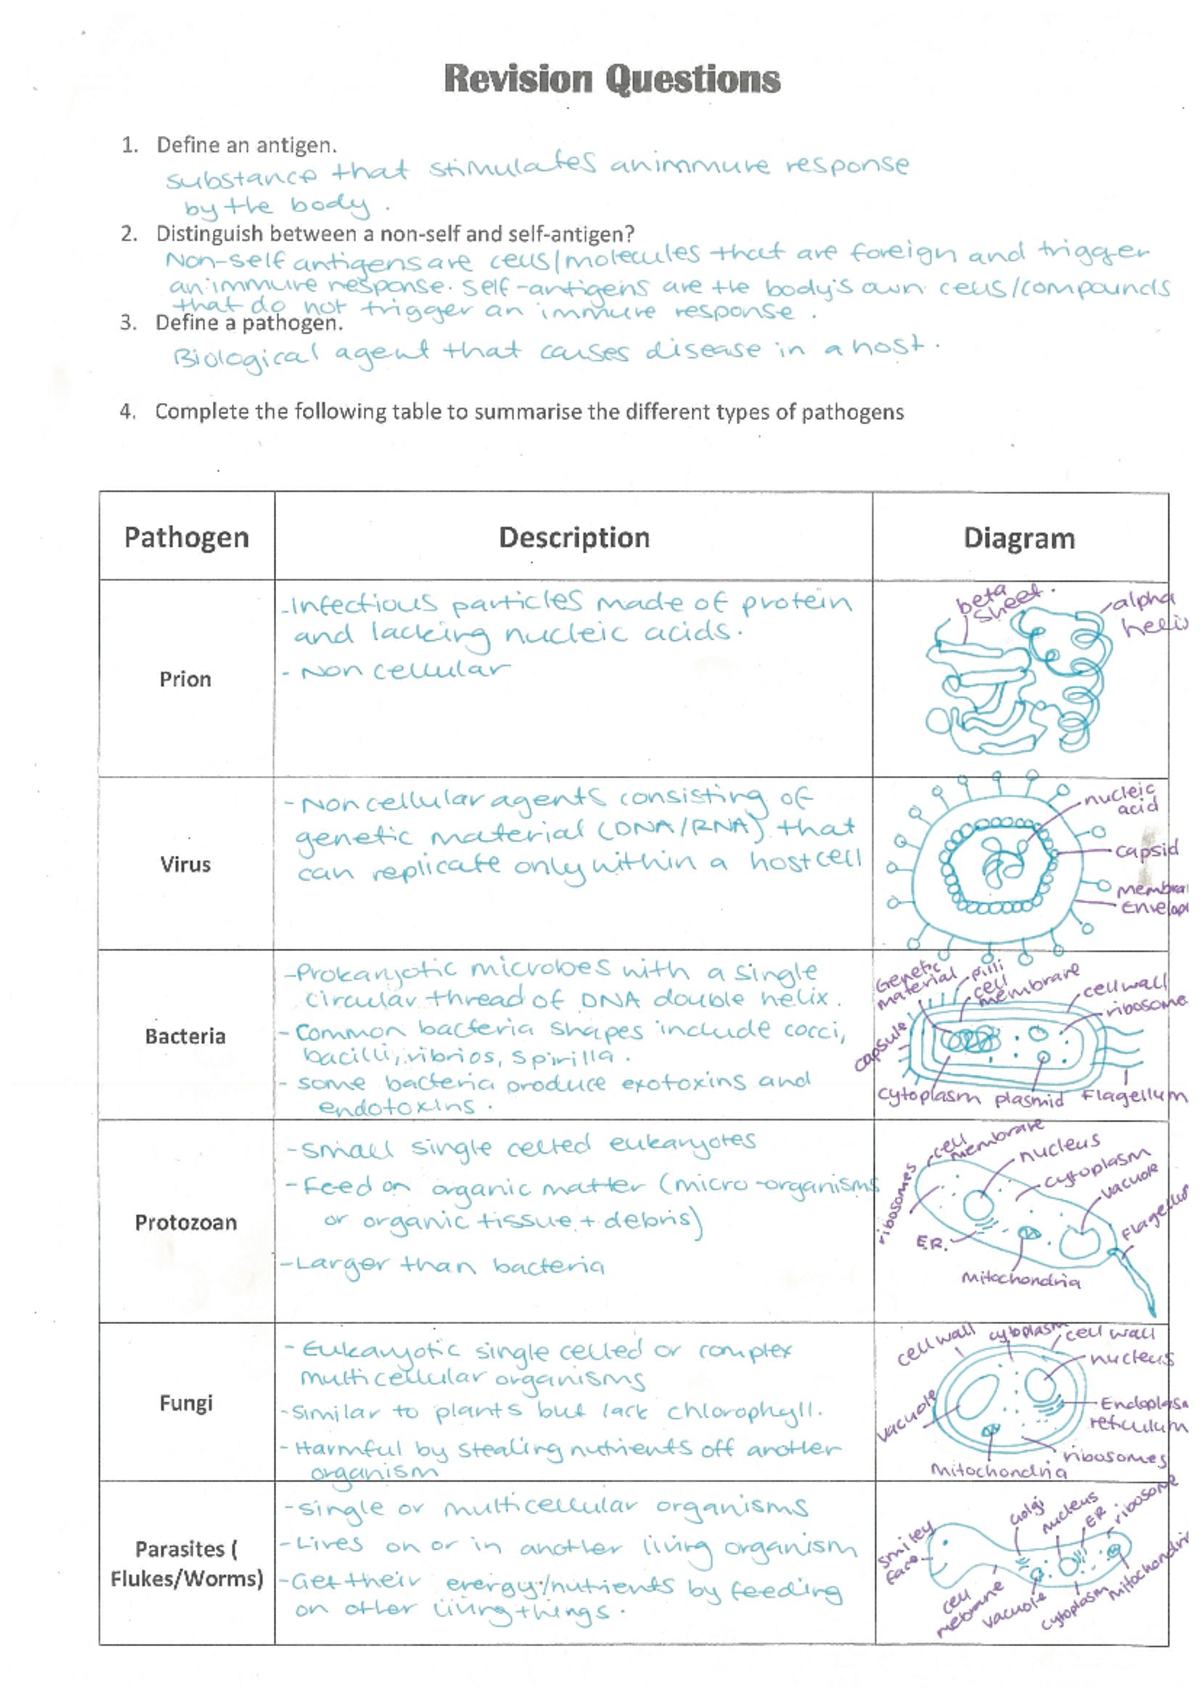 Revision Questions
1. Define an antigen.
substance that stimulates an immure response
by the body.
2. Distinguish between a non-self and self-antigen?
Non-self antigens are cells/molecules that are foreign and trigger
an immure response. Self-antigens are the body's own cells/compounds
that do not trigger an immure response.
3. Define a pathogen.
Biological agent that causes disease in a host.
4. Complete the following table to summarise the different types of pathogens
Pathogen
Description
Diagram
Prion
-Infectious particles made of protein
and lacking nucleic acids.
- Non cellular
beta
sheet.
alpha
Virus
-Non cellular agents consisting of
genetic material (DNA/RNA) that
can replicate only within a host cell
nucleic
acid
capsid
Bacteria
-Prokaryotic microbes with a single
circular thread of DNA double helix.
- Common bacteria shapes include cocci,
bacilli, vibrios, spirilla.
- some bacteria produce exotoxins and
endotoxins.
Genetic
material
pilli
cell
membrare
cell wall
ribosome
capsule
cytoplasm
plasmid
Flagellum
Protozoan
-Small single celled eukaryotes
-Feed on organic matter (micro-organisms
or organic tissue + debris)
-Larger than bacteria
cell
membrare
nucleus
cytoplasm
vacuole
ribosomes
E.R.
Mitochondria
Fungi
- Eukaryotic single celled or complex
multicellular organisms
-Similar to plants but lack chlorophyll.
-Harmful by stealing nutrients off another
organism
cell wall
cytoplasm
cell wall
nucleus
vacuole
reticulum
ribosomes
Mitochondria
Parasites (
Flukes/Worms)
-single or multicellular organisms
-Lives on or in another living organism
-Get their energy/nutrients by feeding
on other living things.
smiley
face
Golgi
nucleus
ER
ribosome
cell
mebrane
vacuole
cytoplasm